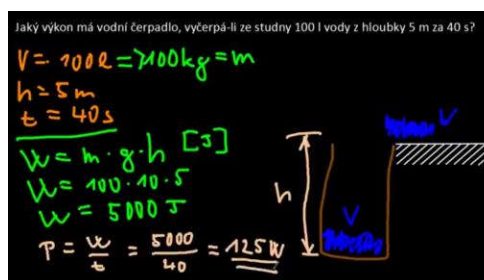 Jaký výkon má vodní čerpadlo, vyčerpá-li ze studny 100 l vody z hloubky 5 m za 40 s?
V = 100l => 100kg = m
h = 5m
t = 40s
W = m · g · h [J]
W = 100 · 10 · 5
W = 5000 J
P = W/t = 5000/40 = 125W
V
h
V